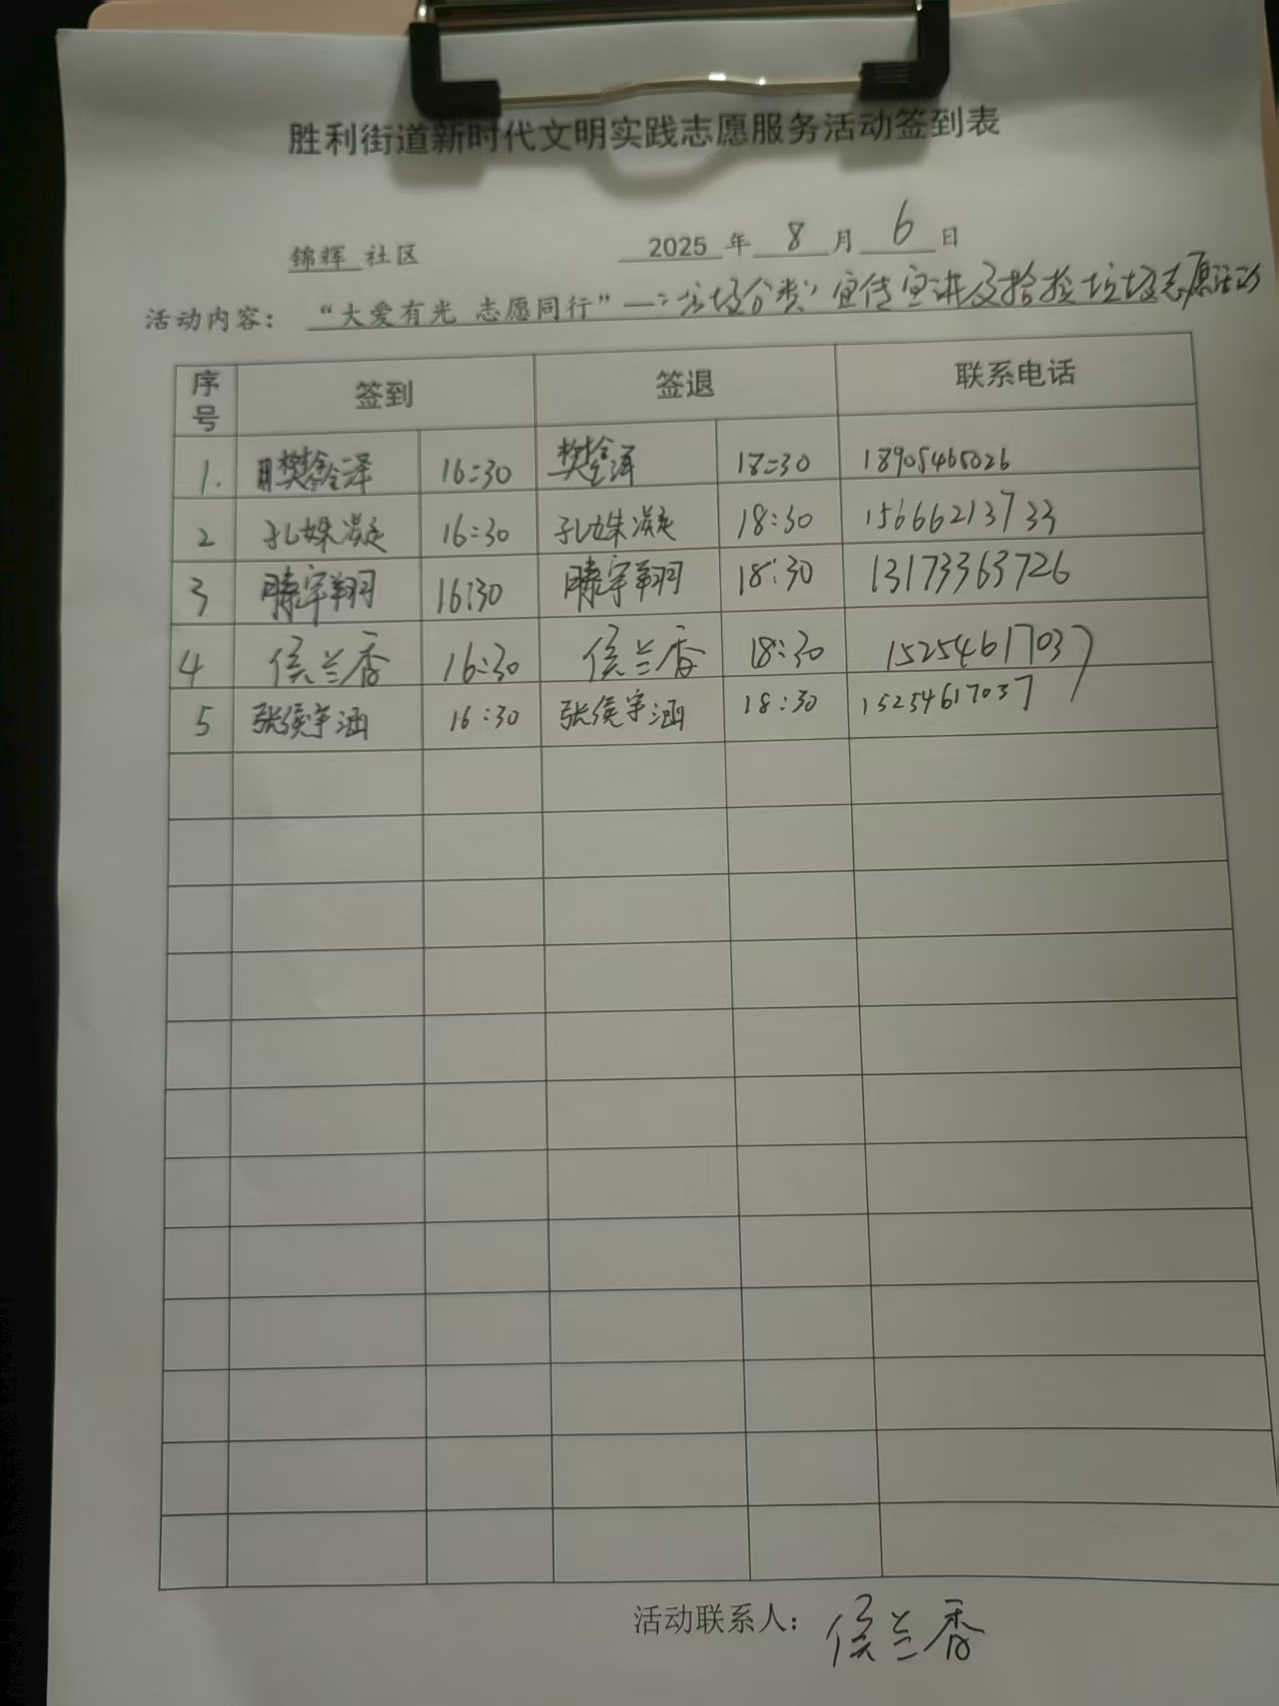 胜利街道新时代文明实践志愿服务活动签到表
锦辉 社区 2025 年 8 月 6 日
活动内容： “大爱有光 志愿同行”—“垃圾分类”宣传宣讲及捡垃圾志愿活动
序号 签到 签退 联系电话
1. 樊金泽 16:30 樊金泽 18:30 18905465026
2 孔姝凝 16:30 孔姝凝 18:30 15666213733
3 滕宇翔 16:30 滕宇翔 18:30 13173363726
4 侯兰香 16:30 侯兰香 18:30 15254617037
5 张侯宇涵 16:30 张侯宇涵 18:30 15254617037
活动联系人： 侯兰香